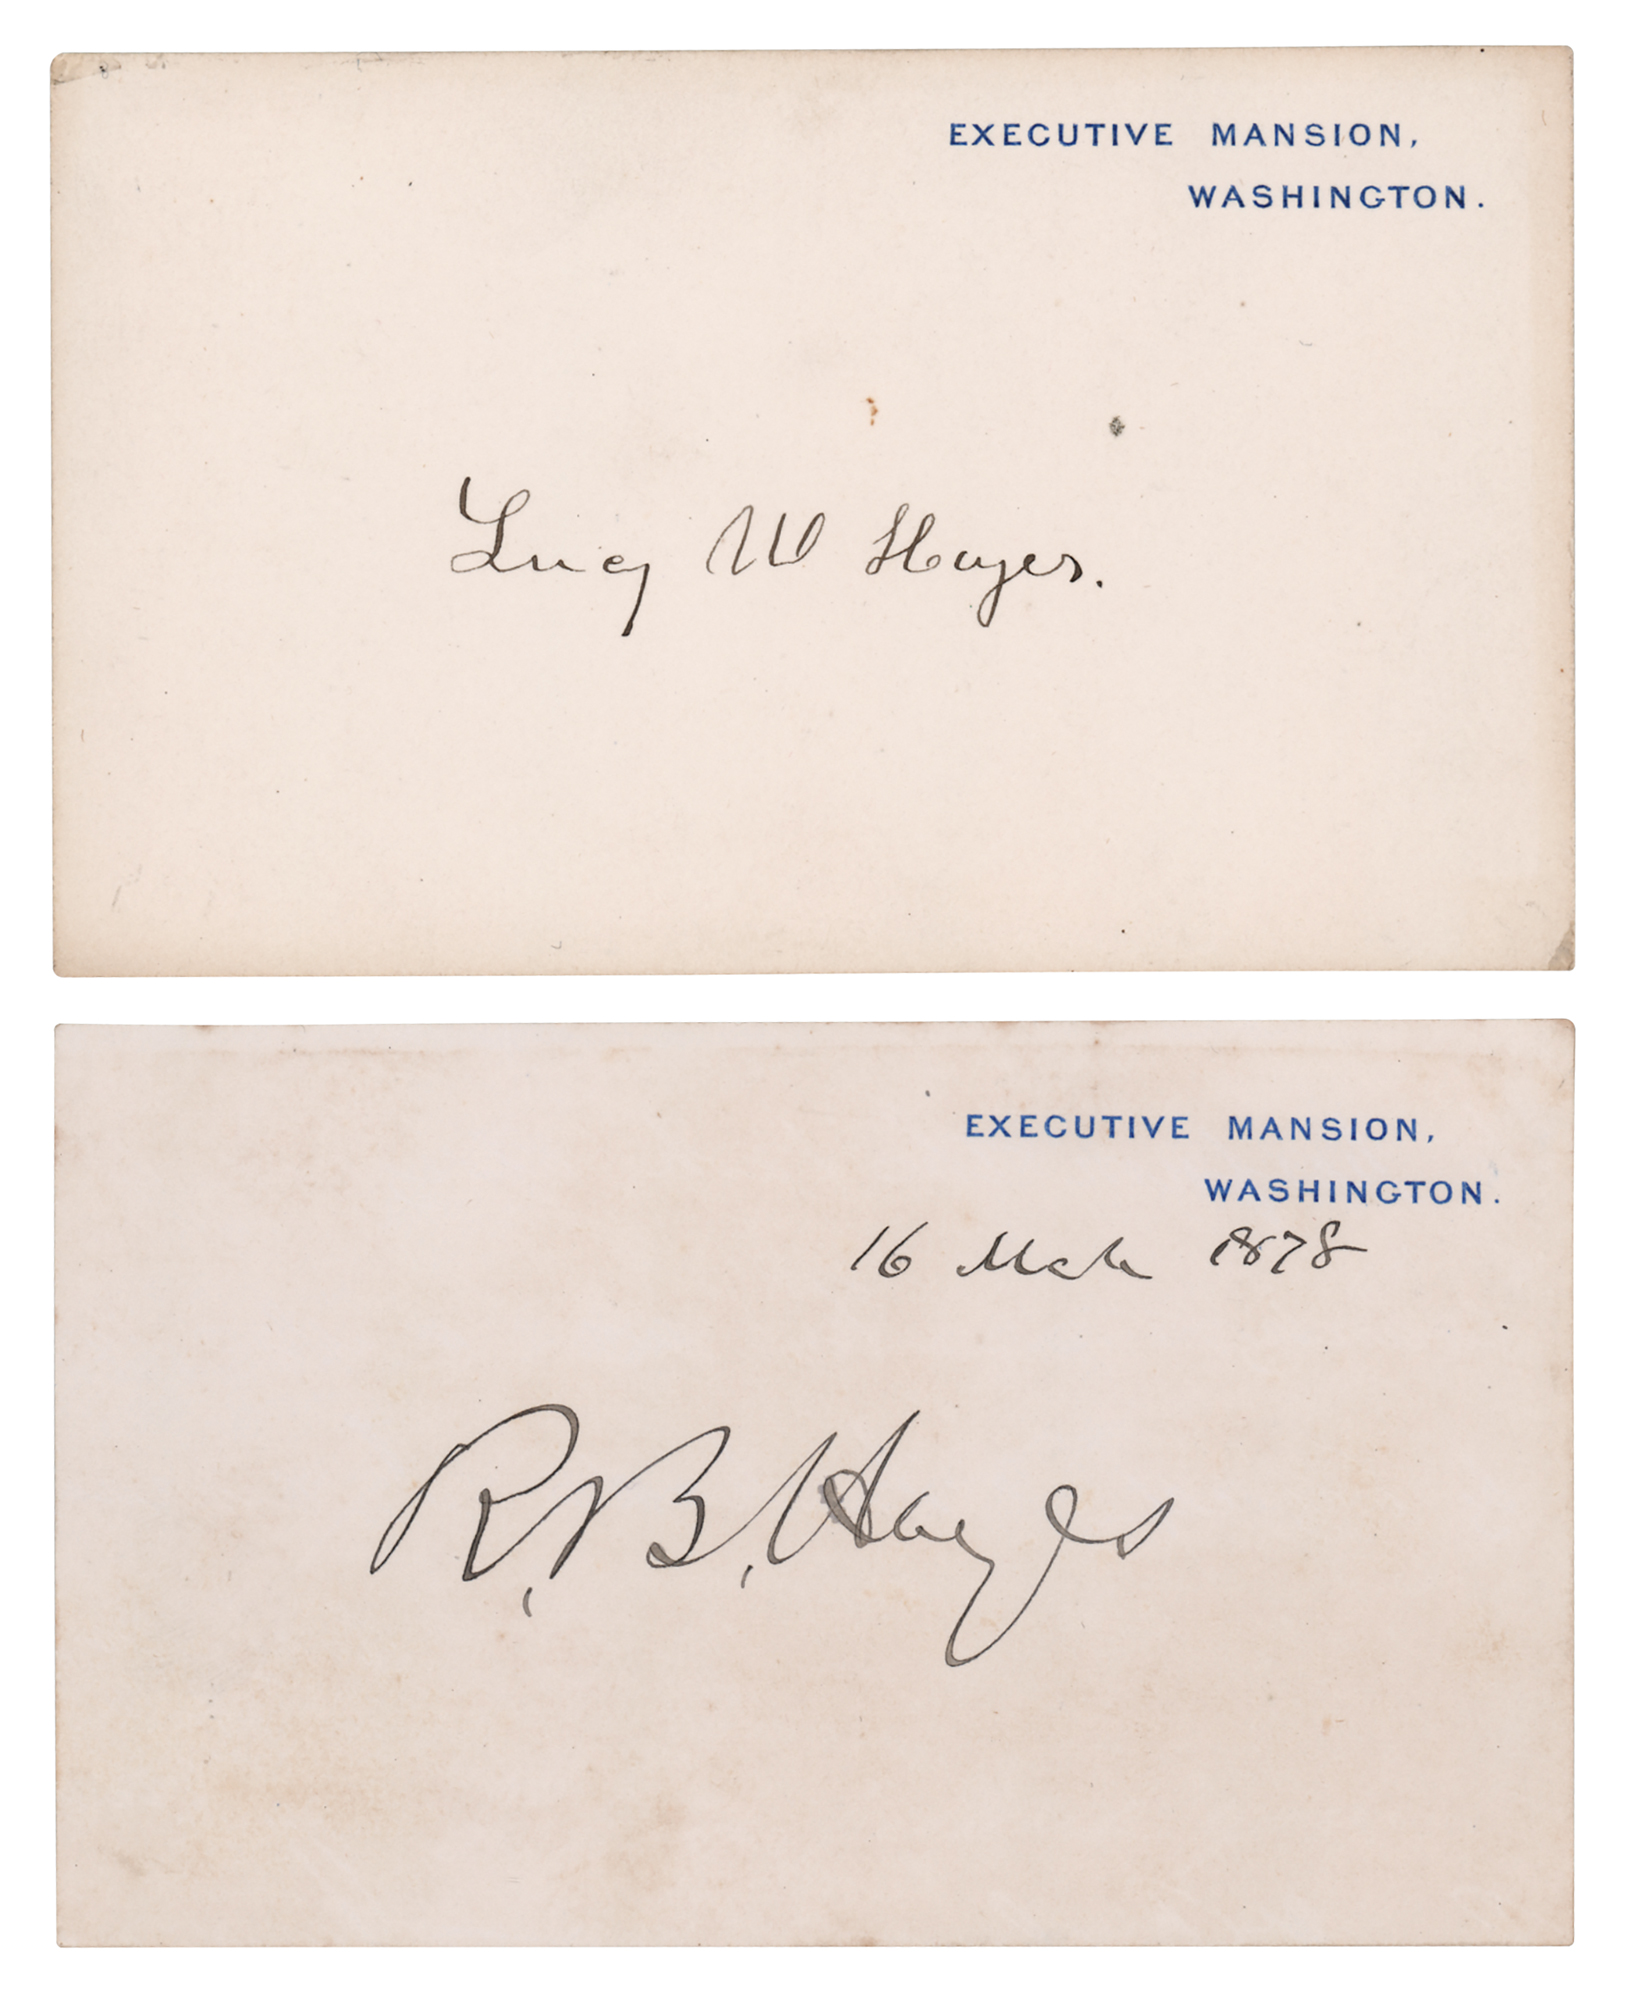 EXECUTIVE MANSION,
WASHINGTON.
Lucy W Hayes.
EXECUTIVE MANSION,
WASHINGTON.
16 Mch 1878
R. B. Hayes